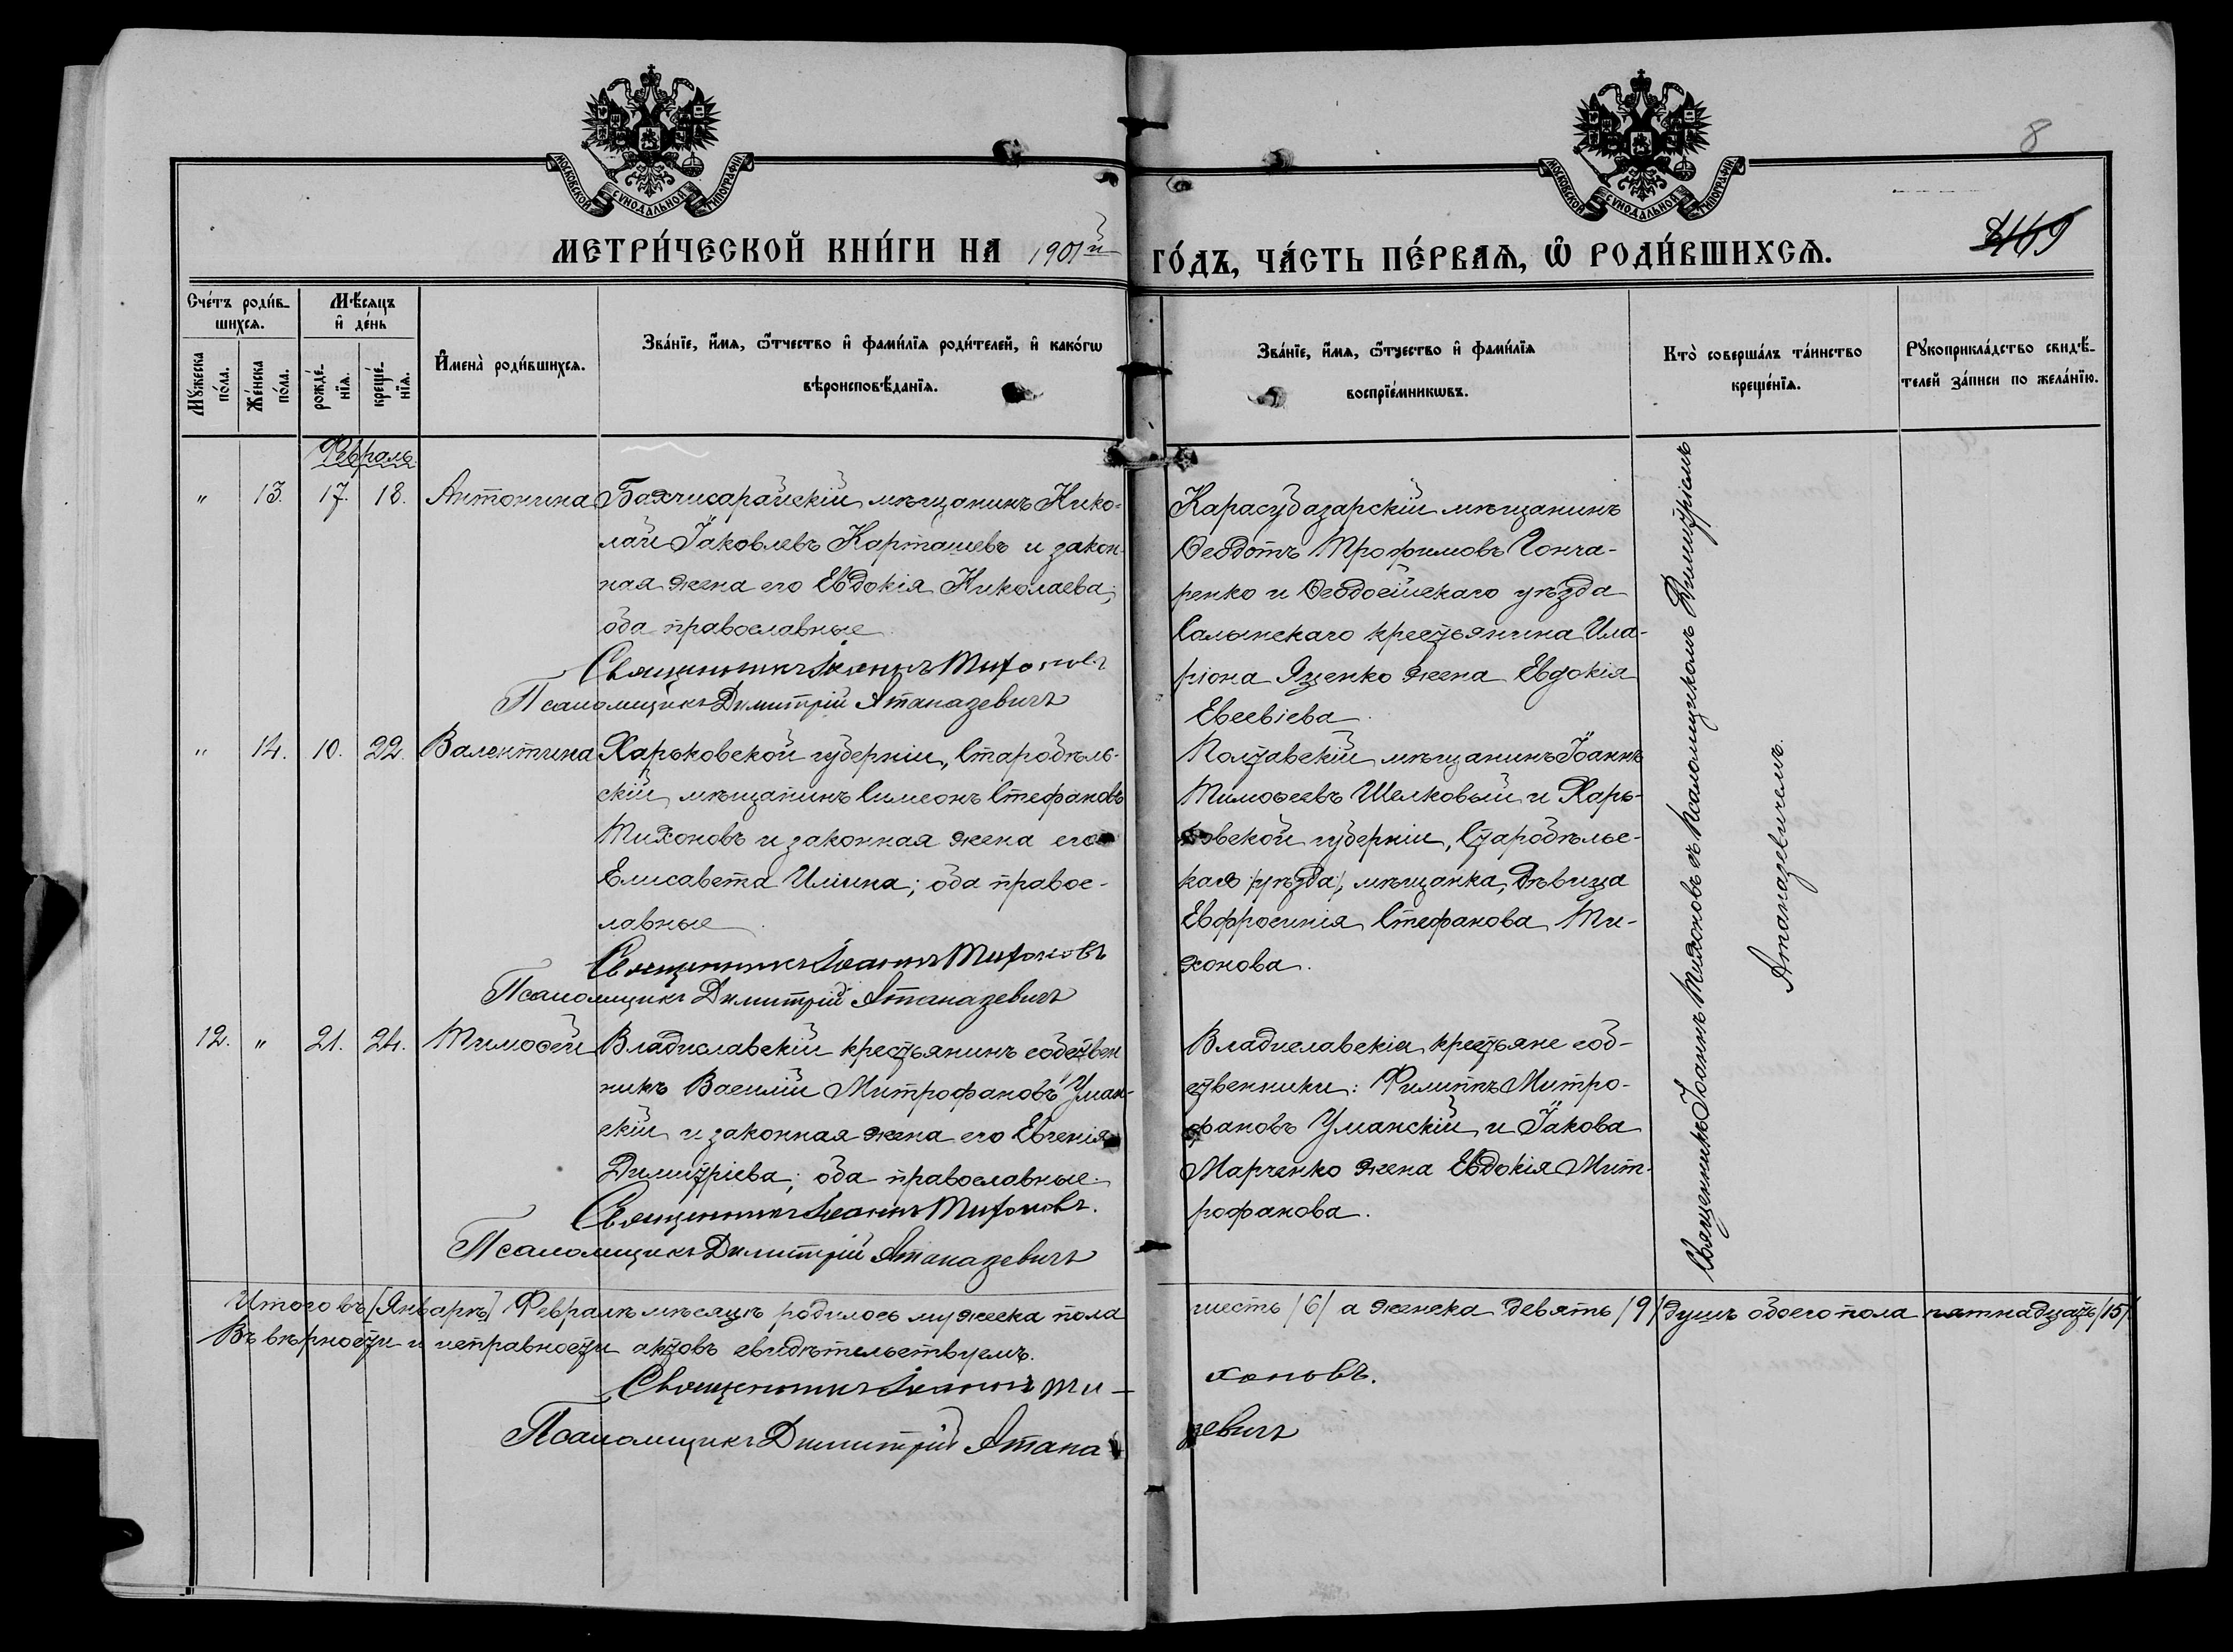 МОСКОВСКОЙ СѴНОДАЛЬНОЙ ТИПОГРАФІИ
МОСКОВСКОЙ СѴНОДАЛЬНОЙ ТИПОГРАФІИ
8
МЕТРИ́ЧЕСКОЙ КНИ́ГИ НА 1901й ГО́ДЪ, ЧА́СТЬ ПЕ́РВАѦ, Ѡ҆ РОДИ́ВШИХСѦ.
Сче́тъ роди́в-
шихсѧ.
Мѣ́сѧцъ
и҆ де́нь
Мꙋ́жеска
по́ла.
Же́нска
по́ла.
рожде́-
нїѧ.
креще́-
нїѧ.
И҆мена̀ роди́вшихсѧ.
Зва́нїе, и҆́мѧ, ѻ҆́тчество и҆ фами́лїѧ роди́телей, и҆ како́гѡ
вѣроисповѣ́данїѧ.
Зва́нїе, и҆́мѧ, ѻ҆́тчество и҆ фами́лїѧ
воспрїе́мникѡвъ.
Кто̀ соверша́лъ та́инство
креще́нїѧ.
Рꙋкоприкла́дство свидѣ́-
телей за́писи по жела́нїю.
Февраль
" 13. 17. 18. Антонина Бахчисарайскій мѣщанинъ Нико-
лай Іаковлевъ Карташевъ и закон-
ная жена его Евдокія Николаева;
оба православные
Священникъ Іоаннъ Тихоновъ
Псаломщикъ Димитрій Атаназевичъ
Карасубазарскій мѣщанинъ
Ѳеодотъ Трофимовъ Гонча-
ренко и Ѳеодосійскаго уѣзда
Салынскаго крестьянина Ила-
ріона Яценко жена Евдокія
Евсевіева.
" 14. 10. 22. Валентина Харьковской губерніи, Старобѣль-
скій мѣщанинъ Симеонъ Стефановъ
Тихоновъ и законная жена его
Елисавета Иліина; оба правос-
лавные.
Священникъ Іоаннъ Тихоновъ
Псаломщикъ Димитрій Атаназевичъ
Полтавскій мѣщанинъ Іоаннъ
Тимоѳеевъ Шелковый и Харь-
ковской губерніи, Старобѣльс-
каго /уѣзда/, мѣщанка, дѣвица
Евфросинія Стефанова Ти-
хонова.
12. " 21. 24. Тимоѳей Владиславскій крестьянинъ собствен
никъ Василій Митрофановъ Уман-
скій и законная жена его Евгенія
Димитріева; оба православные.
Священникъ Іоаннъ Тихоновъ.
Псаломщикъ Димитрій Атаназевичъ
Владиславскіе крестьяне соб-
ственники: Филиппъ Митро-
фановъ Уманскій и Іакова
Марченко жена Евдокія Мит-
рофанова.
Священникъ Іоаннъ Тихоновъ съ Псаломщикомъ Димитріемъ
Атаназевичемъ.
Итого въ [Январѣ] Февралѣ мѣсяцѣ родилось мужеска пола шесть /6/ а женска девять /9/ душъ обоего пола пятнадцать /15/.
Въ вѣрности и исправности актовъ свидѣтельствуемъ.
Священникъ Іоаннъ Ти-хоновъ.
Псаломщикъ Димитрій Атаназевичъ